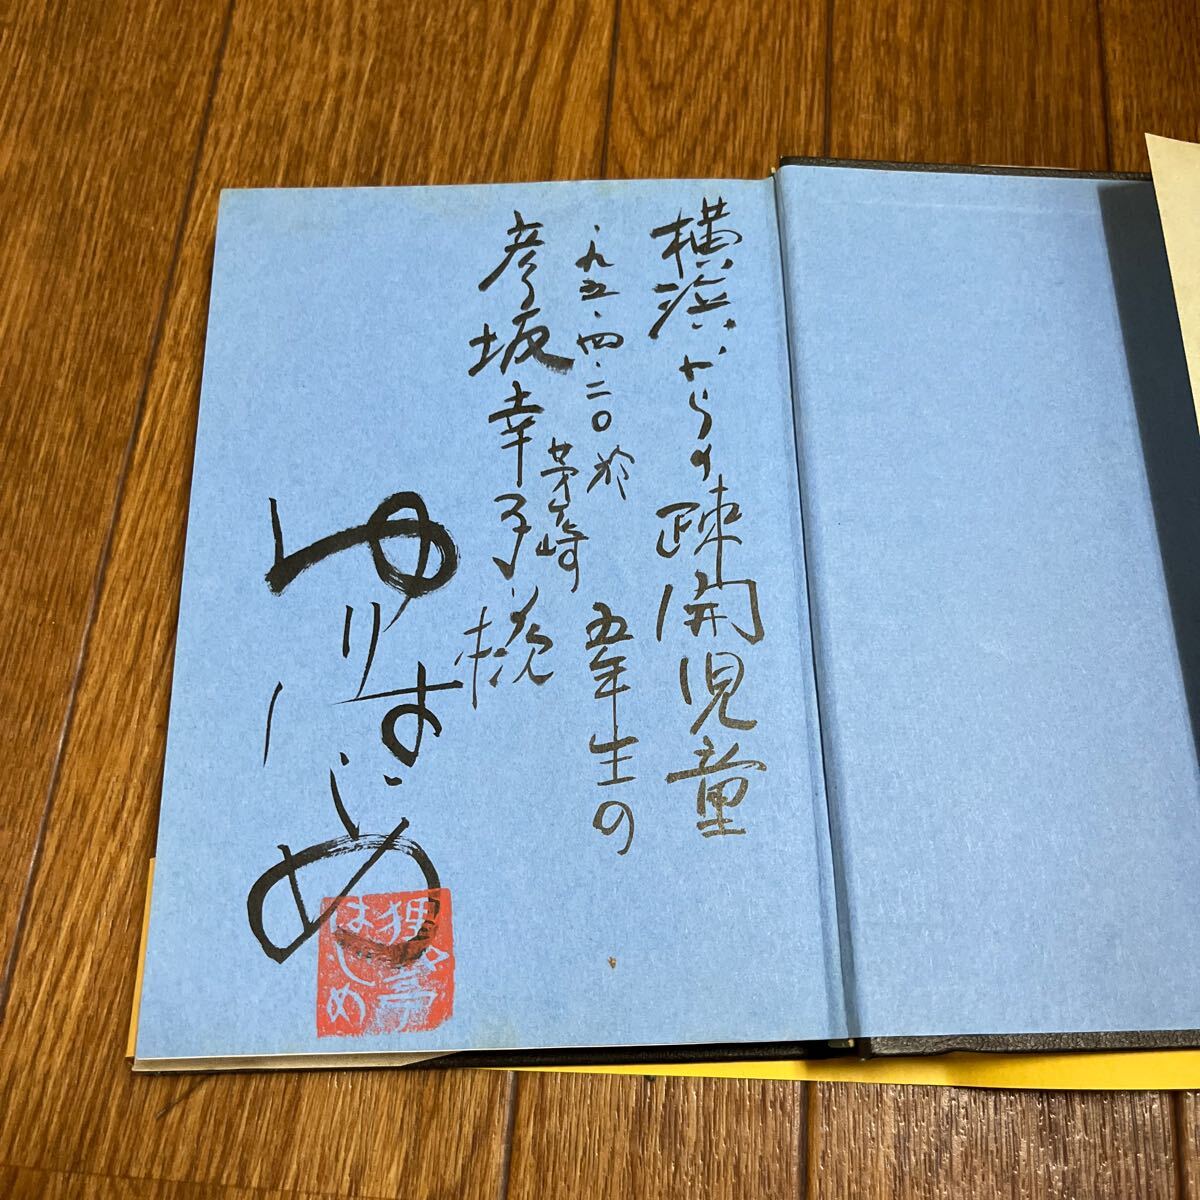 横浜からの疎開児童
五年生の
・九五・四・二〇 於
茅ヶ崎
彦坂幸子様
ゆりはじめ
狸亭
はじめ